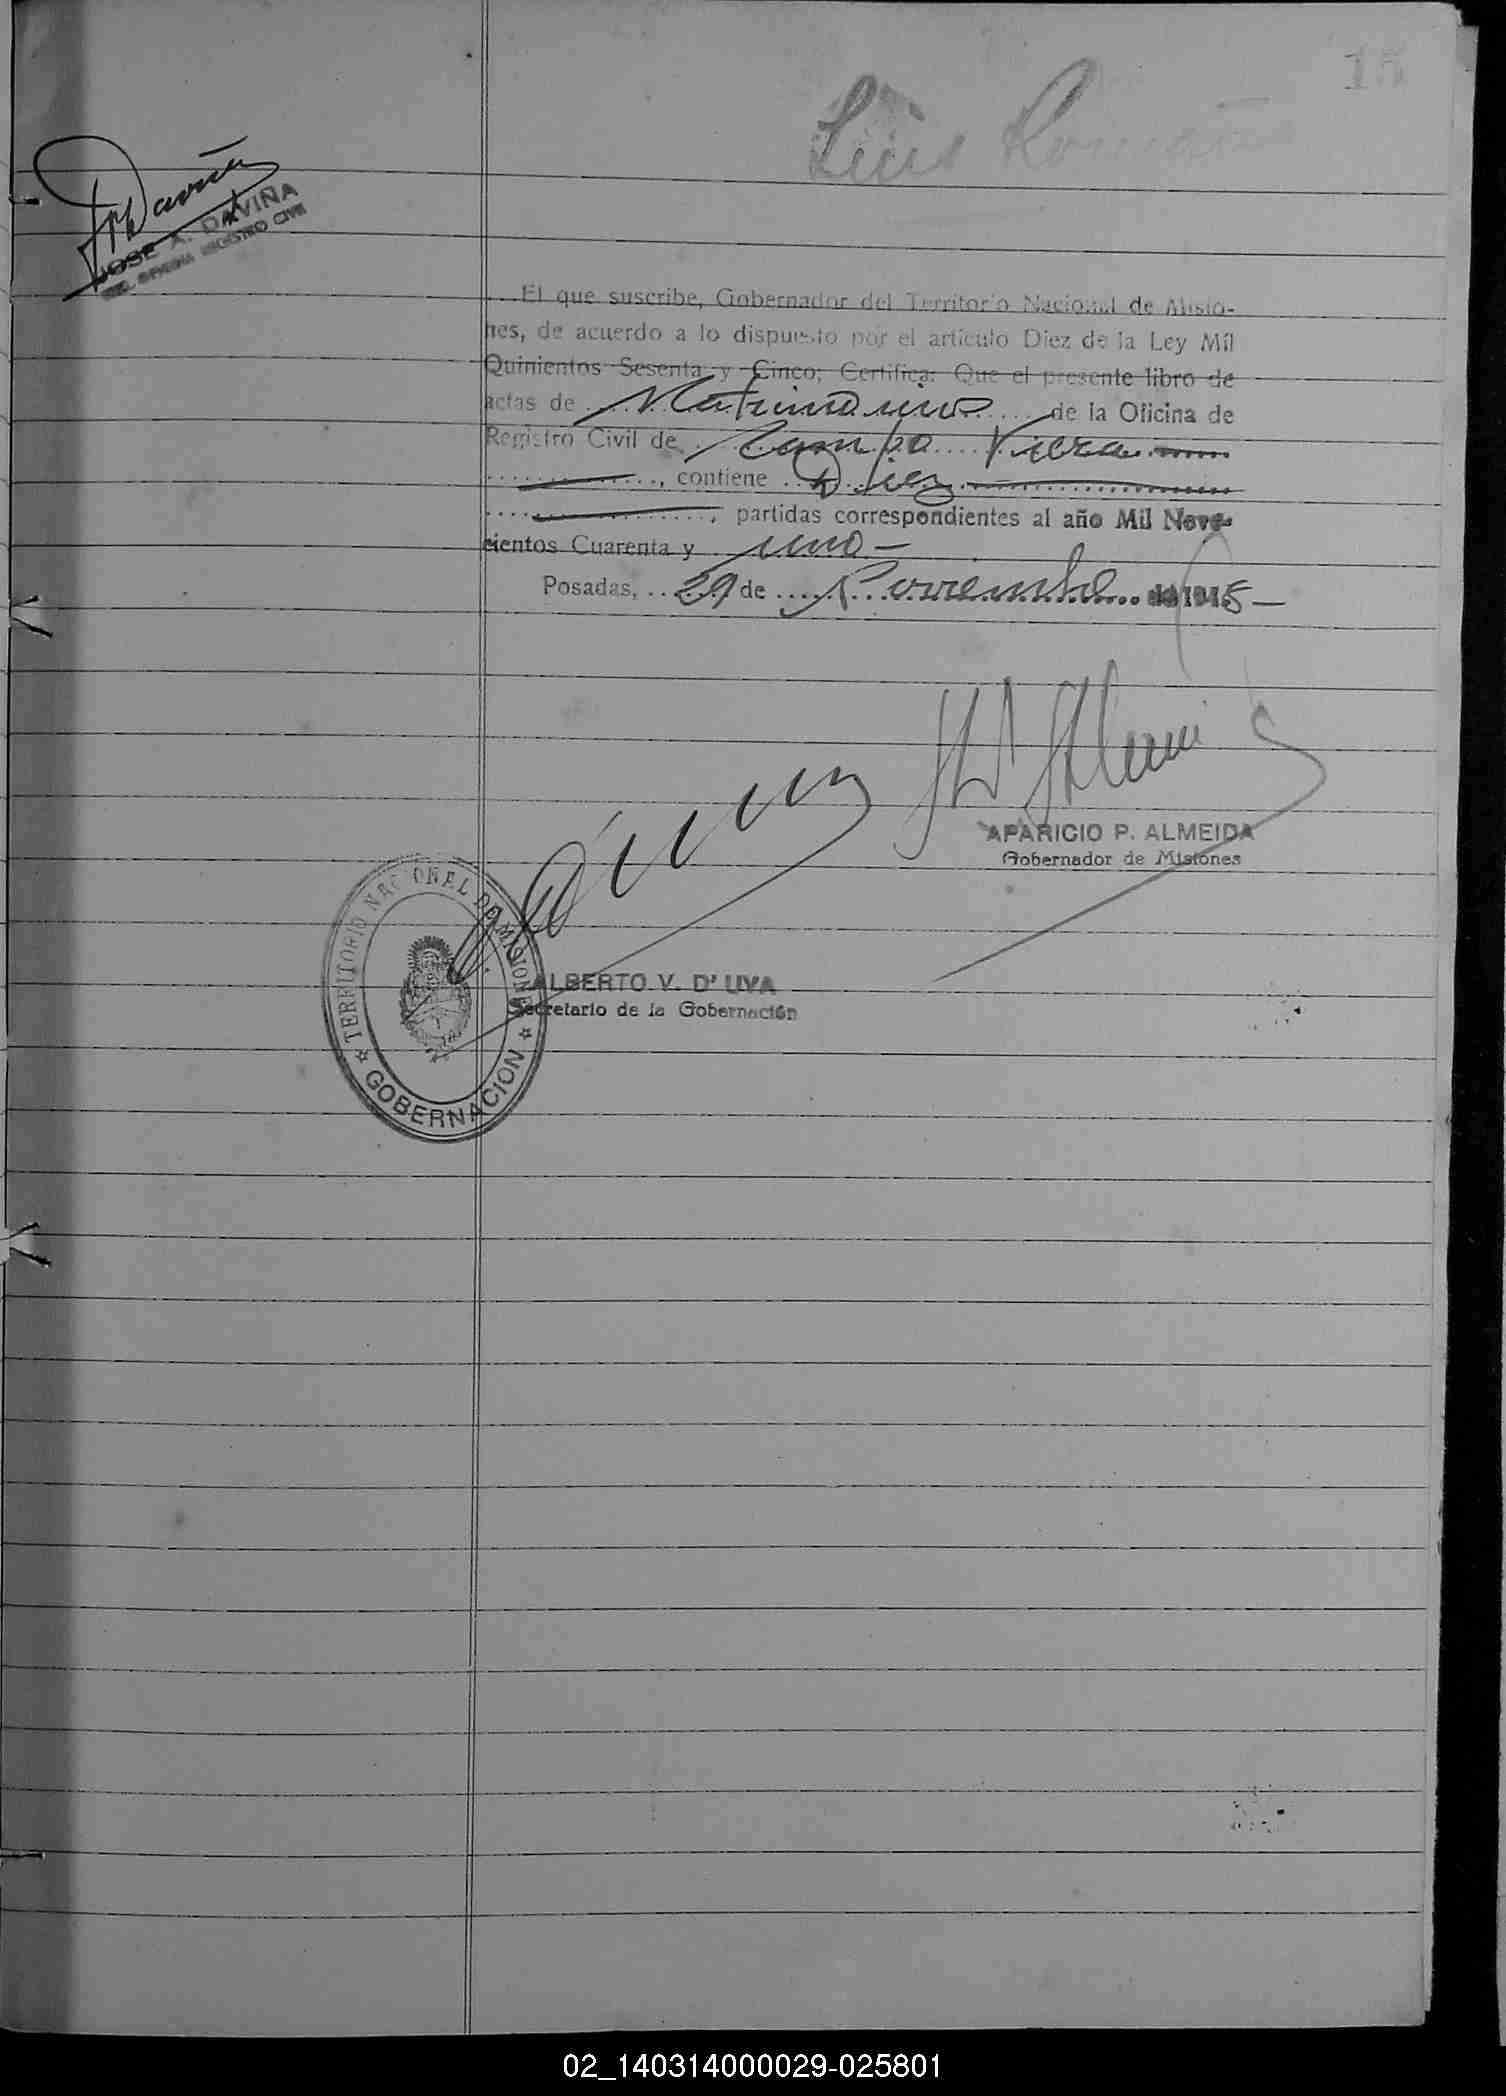 15
Luis Roman
JOSE A. DAVIÑA
OFICINA REGISTRO CIVIL
El que suscribe, Gobernador del Territorio Nacional de Misio-
nes, de acuerdo a lo dispuesto por el artículo Diez de la Ley Mil
Quinientos Sesenta y Cinco; Certifica: Que el presente libro de
actas de Matrimonios de la Oficina de
Registro Civil de Campo Viera
, contiene Diez
, partidas correspondientes al año Mil Nove-
cientos Cuarenta y uno-
Posadas, 29 de Noviembre de 1945-
APARICIO P. ALMEIDA
Gobernador de Misiones
TERRITORIO NACIONAL DE MISIONES
GOBERNACION
ALBERTO V. D' UVA
Secretario de la Gobernación
02_140314000029-025801